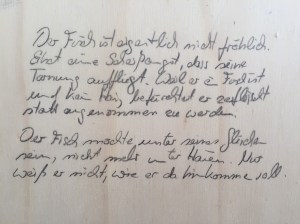 Der Fisch ist eigentlich nicht fröhlich.
Er hat eine Scheißangst, dass seine
Tarnung auffliegt. Weil er ein Fisch ist
und kein Hai, befürchtet er zerfleischt
statt angenommen zu werden.
Der Fisch möchte unter seines Gleichen
sein, nicht mehr unter Haien. Nur
weiß er nicht, wie er da hinkommen soll.